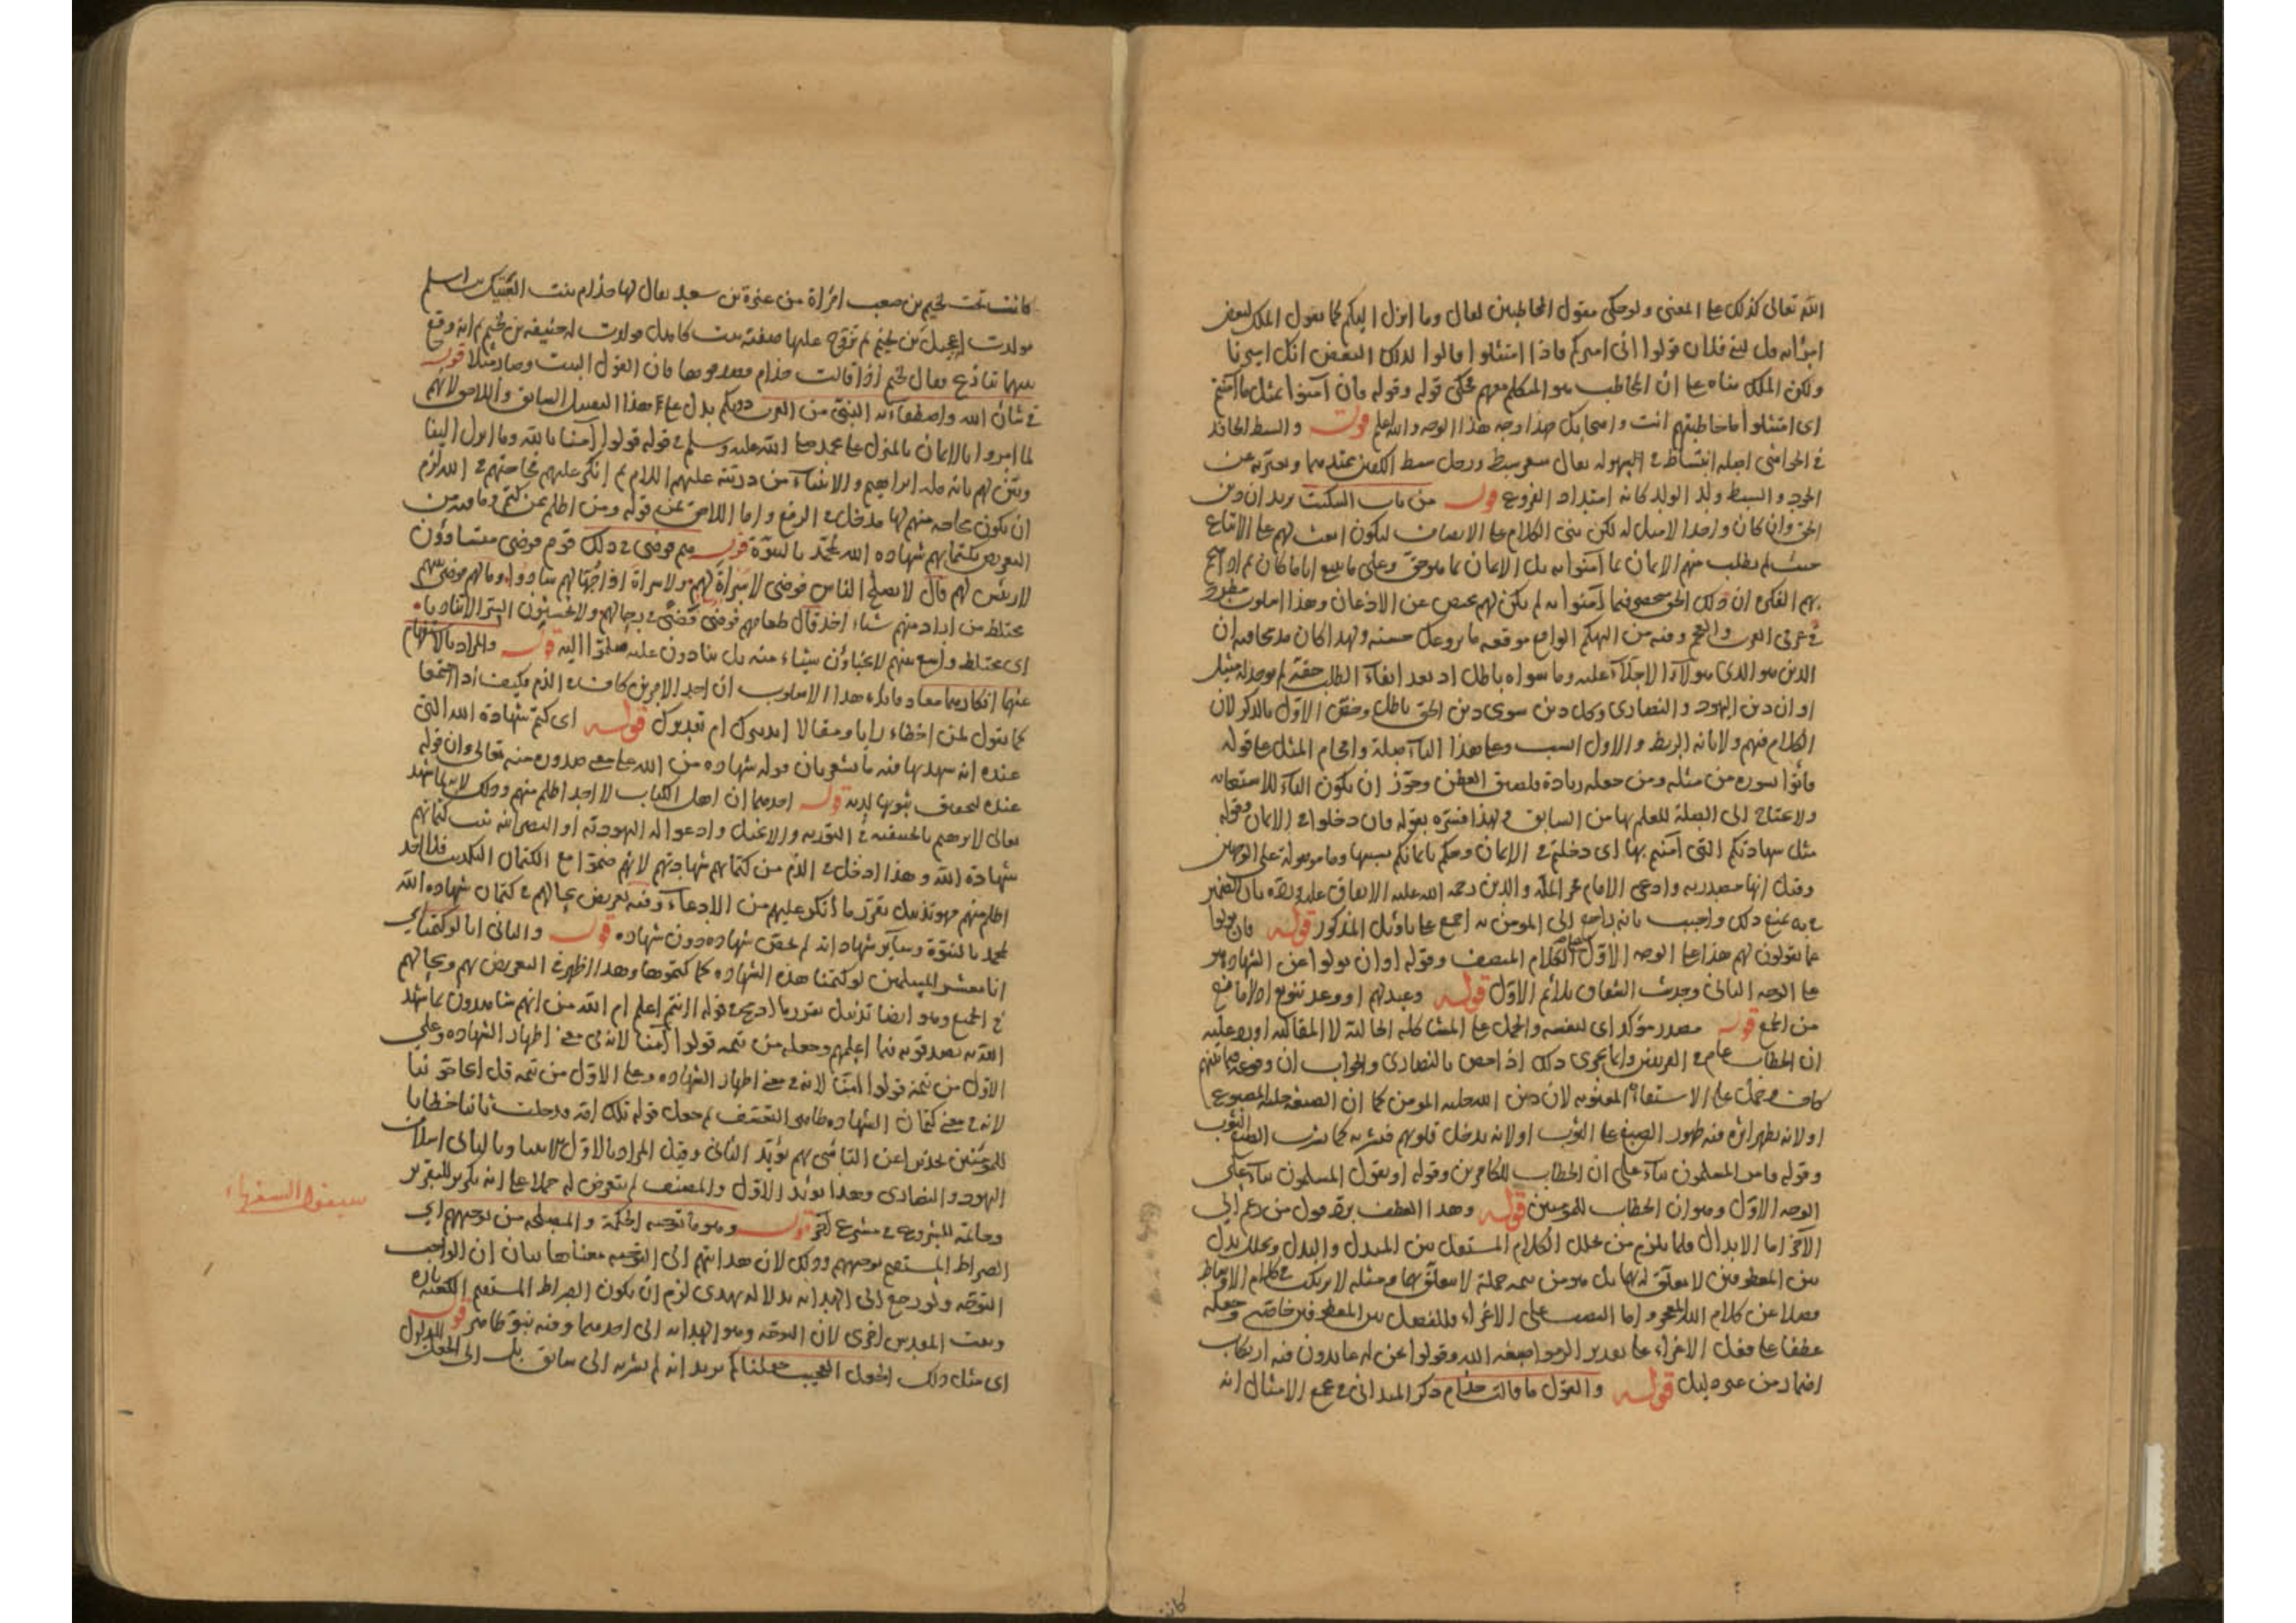 الله تعالى كذلك على المعنى ولو حكى مقول المخاطبين لقال وما انزل اليكم كما يقول الملك لبعض
امرائه قل لبني فلان قولوا اني اميركم فاذا امتثلوا قالوا لذلك البعض انك اميرنا
ولكن الملك بناه على ان المخاطب هو المتكلم معهم فحكى قوله وقوله فان آمنوا بمثل ما آمنتم
اى امتثلوا ما خاطبتهم انت واصحابك هذا وجه هذا الوجه والله اعلم قوله والسبط الحافد
في الحواشي اصله انبساط في سهولة يقال شعر سبط ورجل سبط الكفين ممتدهما ويعبر به عن
الجود والسبط ولد الولد كانه امتداد الفروع قوله من باب التبكيت يريد ان دين
الحق وان كان واحدا لا مثل له لكن بنى الكلام على الانصاف ليكون ابعث لهم على الاتباع
حيث لم يطلب منهم الايمان بما آمنوا به بل الايمان بما هو حق وعلى ما ينبغي اياما كان ثم اذا هجم
بهم الفكر ان ذلك الحق منحصر فيما آمنوا به لم يكن لهم محيص عن الاذعان وهذا اسلوب مطرد
في عرفي العرب والعجم وفيه من التهكم الواقع موقعه ما يروعك حسنه ولهذا كان
الدين هو الذى هؤلاء الاجلاء عليه وما سواه باطل
او ان دين اليهود والنصارى وكل دين سوى دين الحق باطل وخص الاول بالذكر لان
الكلام فيهم ولابانة الربط والاول انسب وعلى هذا الباء صلة واقحام المثل على قوله
فأتوا بسورة من مثله ومن جعله زيادة فلضيق العطن وجوز ان يكون الباء للاستعانة
ولا يحتاج الى الصلة للعلم بها من السابق ولهذا فسره بقوله فان دخلوا في الايمان وقوله
مثل شهادتكم التى آمنتم بها اى دخلتم في الايمان وحكم بايمانكم بسببها وما موصولة على الوجهين
وقيل انها مصدرية وادعى الامام فخر الملة والدين رحمه الله عليه الاتفاق عليه ورده بان الضمير
في به يمنع ذلك واجيب بانه راجع الى المؤمن به اجمع على تأويل المذكور قوله فان تولوا
عما تقولون لهم هذا على الوجه الاول الكلام المنصف وقوله او ان تولوا عن الشهادة هو
على الوجه الثاني وحديث الشقاق يلائم الاول قوله وعيد لهم او وعد تنويع اذ لا مانع
من الجمع قوله مصدر مؤكد اى لنفسه والحمل على المشاكلة الحالية لا المقالية اورد عليه
ان الخطاب عام في الفريقين وانما يجري ذلك اذا خص بالنصارى والجواب ان وقوعه فيما بينهم
كاف وحمل على الاستعارة المعنوية لان دين الله حلية المؤمن كما ان الصبغة حلية المصبوغ
او لانه يظهر اثره فيه ظهور الصبغ على الثوب او لانه يدخل قلوبهم فيشربه كما يشرب الصبغ الثوب
وقوله فامر المسلمون بناء على ان الخطاب للكافرين وقوله او يقول المسلمون بناء على
الوجه الاول وهو ان الخطاب للمؤمنين قوله وهذا العطف يرد قول من زعم الى
الآخر اما الابدال فلما يلزم من تخلل الكلام المستقل بين المبدل والبدل وتخلل بدل
بين المعطوفين لا تعلق له بها بل هو من تتمة جملة لا تعلق بها ومثله لا يرتكب في كلام الاوساط
فضلا عن كلام الله المعجز واما النصب على الاغراء فللفصل بين المعطوفين خاصة وجعله
عطفا على فعل الاغراء على تقدير الزموا صبغة الله وقولوا نحن له عابدون فيه ارتكاب
اضمار من غير دليل قوله والقول ما قالت حذام ذكر الميداني في مجمع الامثال انه
كانت
كانت تحت لجيم بن صعب امرأة من عنزة بن سعد يقال لها حذام بنت العتيك بن اسلم
فولدت عجل بن لجيم ثم تزوج عليها صفية بنت كاهل فولدت له حنيفة بن لجيم ثم انه وقع
بينهما تنازع فقال لجيم اذا قالت حذام فصدقوها فان القول البيت وصار مثلا قوله
في شأن الله واصطفائه النبي من العرب دونكم يدل على هذا التفصيل السابق واللاحق لانهم
لما امروا بالايمان بالمنزل على محمد صلى الله عليه وسلم في قوله قولوا آمنا بالله وما انزل الينا
وبين لهم بانه ملة ابراهيم والانبياء من ذريته عليهم السلام ثم انكر عليهم محاجتهم في الله لزم
ان يكون محاجة منهم لها مدخل في الرفع واما اللاحق فمن قوله ومن اظلم ممن كتم وما فيه من
التعريض بكتمانهم شهادة الله لمحمد بالنبوة قوله هم فوضى في ذلك قوم فوضى متساوون
لا رئيس لهم قال لا يصلح الناس فوضى لا سراة لهم ولا سراة اذا جهالهم سادوا ومالهم فوضى بينهم
مختلط من اراد منهم شيئا اخذ قال طعامهم فوضى فضى في رحالهم ولا يحسنون السر الا تناديا
اى مختلط واسع بينهم لا يخبأون شيئا منه بل ينادون عليه هلموا اليه قوله والمراد بالاستفهام
عنهما انكارهما معا وفائدة هذا الاسلوب ان احد الامرين كاف في الذم فكيف اذا اجتمعا
كما تقول لمن اخطأ رأيا ومقالا ام تقريرك قوله اى كتم شهادة الله التى
عنده انه شهد بها فيه ما يشعر بان قوله شهادة من الله على معنى صدوره منه تعالى وان قوله
عنده تحقيق ثبوتها لديه قوله احدهما ان اهل الكتاب لا احد اظلم منهم وذلك لانه لما شهد
تعالى لابرهيم بالحنيفية في التورية والانجيل وادعوا له اليهودية او النصرانية ثبت كتمانهم
شهادة الله وهذا ادخل في الذم من كتمانهم شهادتهم لانهم ضموا مع الكتمان التكذيب فلا احد
اظلم منهم فهو تذييل يقرر ما أنكر عليهم من الادعاء وفيه تعريض بحالهم في كتمان شهادة الله
لمحمد بالنبوة وسائر شهاداته لم يخص شهادة دون شهادة قوله والثاني انا لو كتمنا اى
انا معشر المسلمين لو كتمنا هذه الشهادة كما كتموها وهذا اظهر في التعريض بهم وبحالهم
في الجميع وهو ايضا تذييل يقرر ما ادمج في قوله أأنتم اعلم ام الله من انهم شاهدون بما شهد
الله به مصدقون فيما اعلمهم وجعله من تتمة قولوا آمنا لانه في معنى اظهار الشهادة وعلى
الاول من تتمة قولوا آمنا لانه في معنى اظهار الشهادة وعلى الاول من تتمة قل اتحاجوننا
لانه في معنى كتمان الشهادة ظاهر التعسف ثم جعل قوله تلك امة قد خلت ثانيا خطابا
للمؤمنين تحذيرا عن التأسي بهم يؤيد الثاني وقيل المراد بالاول الانبياء وبالثاني اسلاف
اليهود والنصارى وهذا يؤيد الاول والمصنف لم يتعرض له حملا على انه تكرير للتقرير
سيقول السفهاء
وخاتمة للشروع في مشروع آخر قوله وهو ما توجبه الحكمة والمصلحة من توجيههم الى
الصراط المستقيم توجيههم وذلك لان هدايتهم الى التوجه معناها بيان ان الواجب
التوجه ولو رجع الى الهداية بدلالة يهدى لزم ان يكون الصراط المستقيم الكعبة تارة
وبيت المقدس اخرى لان التوجه وهو الهداية الى احدهما وفيه نبو ظاهر قوله
اى مثل ذلك الجعل العجيب جعلناكم يريد انه لم يشر به الى سابق بل الى الجعل المدلول